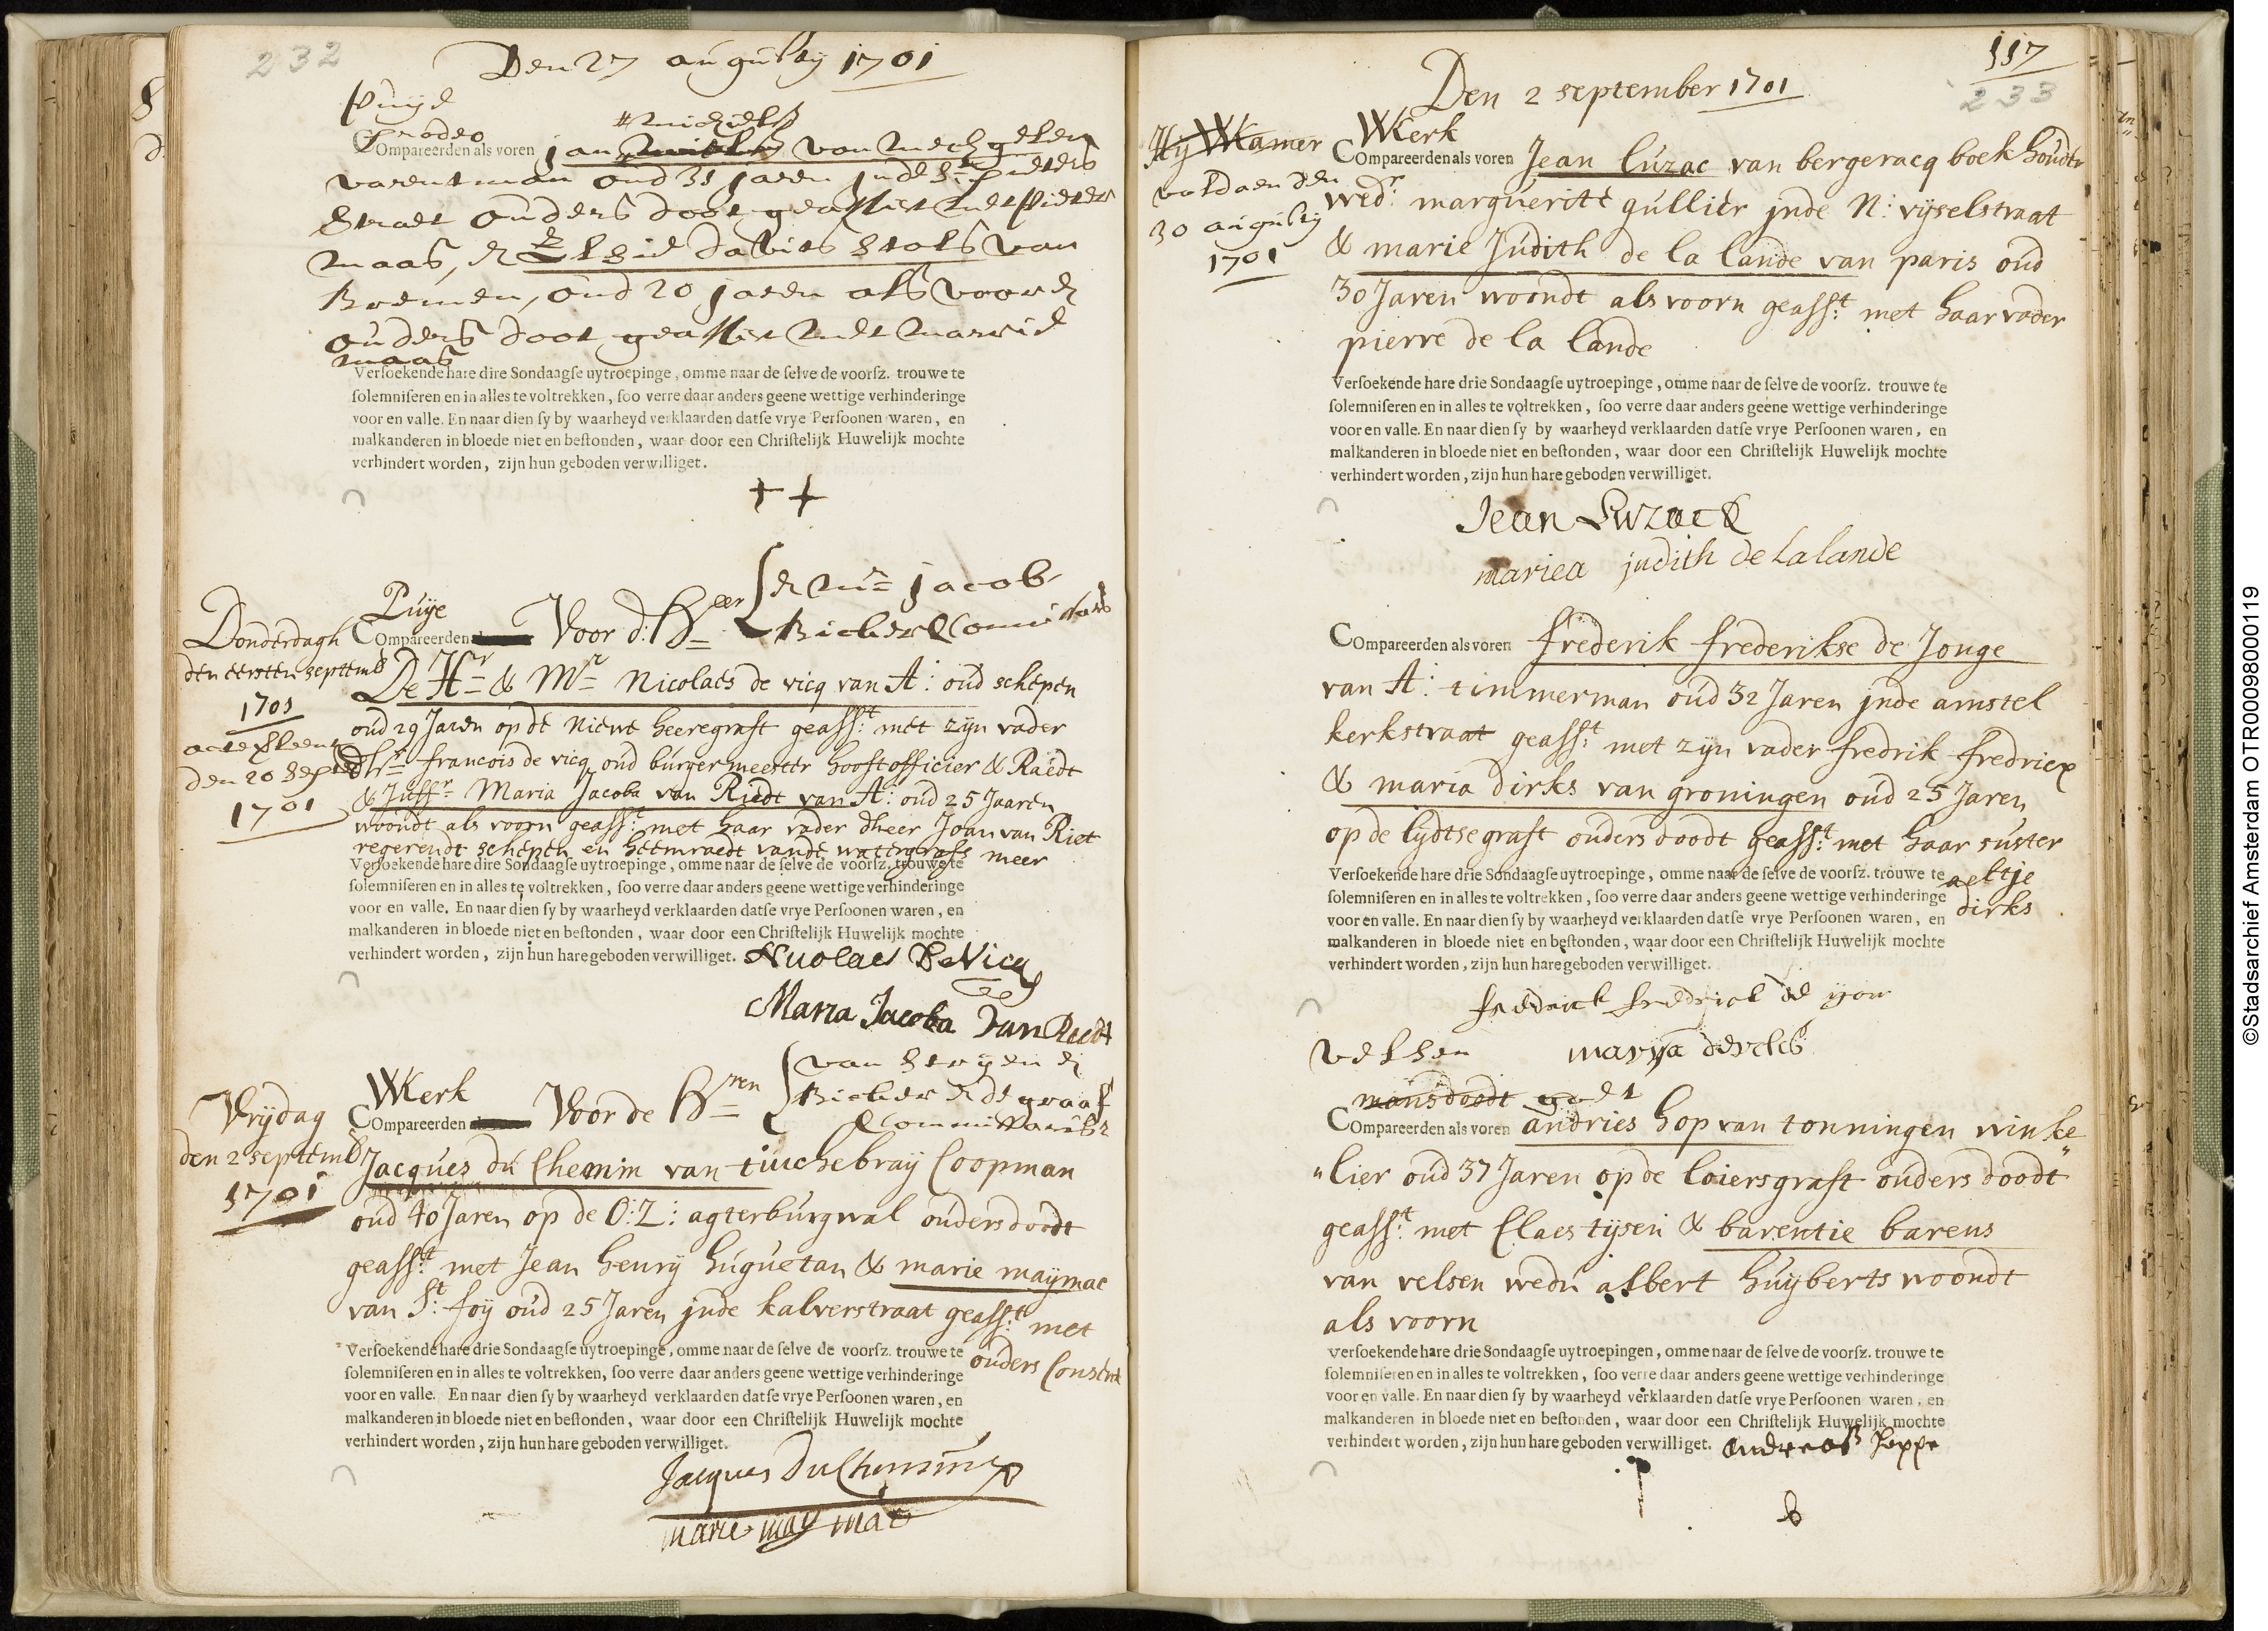 232
Den 27 augusty 1701
Puye
pro deo
#michielsz
Compareerden als voren jan van
varentman oud 31 jaren jnde St pieters
straat ouders doot geassist met Pieter
maas, & Elsie Davids stols van
Bremen, oud 20 jaren als voor &
ouders doot geassist met marrie
maas
Versoekende hare dire Sondaagse uytroepinge, omme naar de selve de voorsz. trouwe te
solemniseren en in alles te voltrekken, soo verre daar anders geene wettige verhinderinge
voor en valle. En naar dien sy by waarheyd verklaarden datse vrye Persoonen waren, en
malkanderen in bloede niet en bestonden, waar door een Christelijk Huwelijk mochte
verhindert worden, zijn hun geboden verwilliget.
+ +
Donderdagh
den eersten septemb
1701
acte
den 20 Sept
1701
Puije
Compareerden Voor d: Heer & Mr Jacob
Bicker Commissars
De Hr & Mr Nicolaes de vicq van A: oud schepen
oud 29 Jaren op de Nieuwe heeregraft geasst: met zyn vader
dhr francois de vicq oud burgermeester hooftofficier & Raedt
& Juffr Maria Jacoba van Riedt van A: oud 25 Jaaren
woondt als voorn geasst: met haar vader dheer Joan van Riet
regerendt schepen en heemraedt vande watergrafs meer
Versoekende hare dire Sondaagse uytroepinge, omme naar de selve de voorsz. trouwe te
solemniseren en in alles te voltrekken, soo verre daar anders geene wettige verhinderinge
voor en valle. En naar dien sy by waarheyd verklaarden datse vrye Persoonen waren, en
malkanderen in bloede niet en bestonden, waar door een Christelijk Huwelijk mochte
verhindert worden, zijn hun hare geboden verwilliget. Nicolaes De Vicq
Maria Jacoba Van Riedt
Vrijdag
den 2 septemb
1701
WKerk
Compareerden Voor de Hren van Strijen &
Bicker & de graaf
Commissarisz
Jacques du Chemin van tinchebraij Coopman
oud 40 Jaren op de O:Z: agterburgwal ouders doodt
geasst: met Jean henry huguetan & marie maijmac
van St: foij oud 25 Jaren jnde kalverstraat geasst: met
ouders Consent
Versoekende hare drie Sondaagse uytroepinge, omme naar de selve de voorsz. trouwe te
solemniseren en in alles te voltrekken, soo verre daar anders geene wettige verhinderinge
voor en valle. En naar dien sy by waarheyd verklaarden datse vrye Persoonen waren, en
malkanderen in bloede niet en bestonden, waar door een Christelijk Huwelijk mochte
verhindert worden, zijn hun hare geboden verwilliget.
Jacques DuChemin
marie may mac
117
233
Den 2 september 1701
Hy WKamer
voldaen den
30 augusty
1701
WKerk
Compareerden als voren Jean luzac van bergeracq boekhoudr
wedr: margueritt gullier jnde N: vijselstraat
& marie Judith de la lande van paris oud
30 Jaren woondt als voorn geasst: met haar vader
pierre de la lande
Versoekende hare drie Sondaagse uytroepinge, omme naar de selve de voorsz. trouwe te
solemniseren en in alles te voltrekken, soo verre daar anders geene wettige verhinderinge
voor en valle. En naar dien sy by waarheyd verklaarden datse vrye Persoonen waren, en
malkanderen in bloede niet en bestonden, waar door een Christelijk Huwelijk mochte
verhindert worden, zijn hun hare geboden verwilliget.
Jean Luzack
mariea judith de Lalande
Compareerden als voren frederik frederikse de Jonge
van A: timmerman oud 32 Jaren jnde amstel
kerkstraat geasst: met zijn vader fredrik fredricx
& maria dirks van groningen oud 25 Jaren
op de lydtsegraft ouders doodt geasst: met haar suster
aeltje
dirks
Versoekende hare drie Sondaagse uytroepinge, omme naar de selve de voorsz. trouwe te
solemniseren en in alles te voltrekken, soo verre daar anders geene wettige verhinderinge
voor en valle. En naar dien sy by waarheyd verklaarden datse vrye Persoonen waren, en
malkanderen in bloede niet en bestonden, waar door een Christelijk Huwelijk mochte
verhindert worden, zijn hun hare geboden verwilliget.
fredrick fredrick de yon
marya dercks
velsen
mans doodt goet
Compareerden als voren andries hop van tonningen winke
"lier oud 37 Jaren op de loiersgraft ouders doodt"
geasst: met Claes tijsen & barentie barens
van velsen wedu albert huijberts woondt
als voorn
Versoekende hare drie Sondaagse uytroepingen, omme naar de selve de voorsz. trouwe te
solemniseren en in alles te voltrekken, soo verre daar anders geene wettige verhinderinge
voor en valle. En naar dien sy by waarheyd verklaarden datse vrye Persoonen waren, en
malkanderen in bloede niet en bestonden, waar door een Christelijk Huwelijk mochte
verhindert worden, zijn hun hare geboden verwilliget. andreas Hoppe
©Stadsarchief Amsterdam OTR00098000119